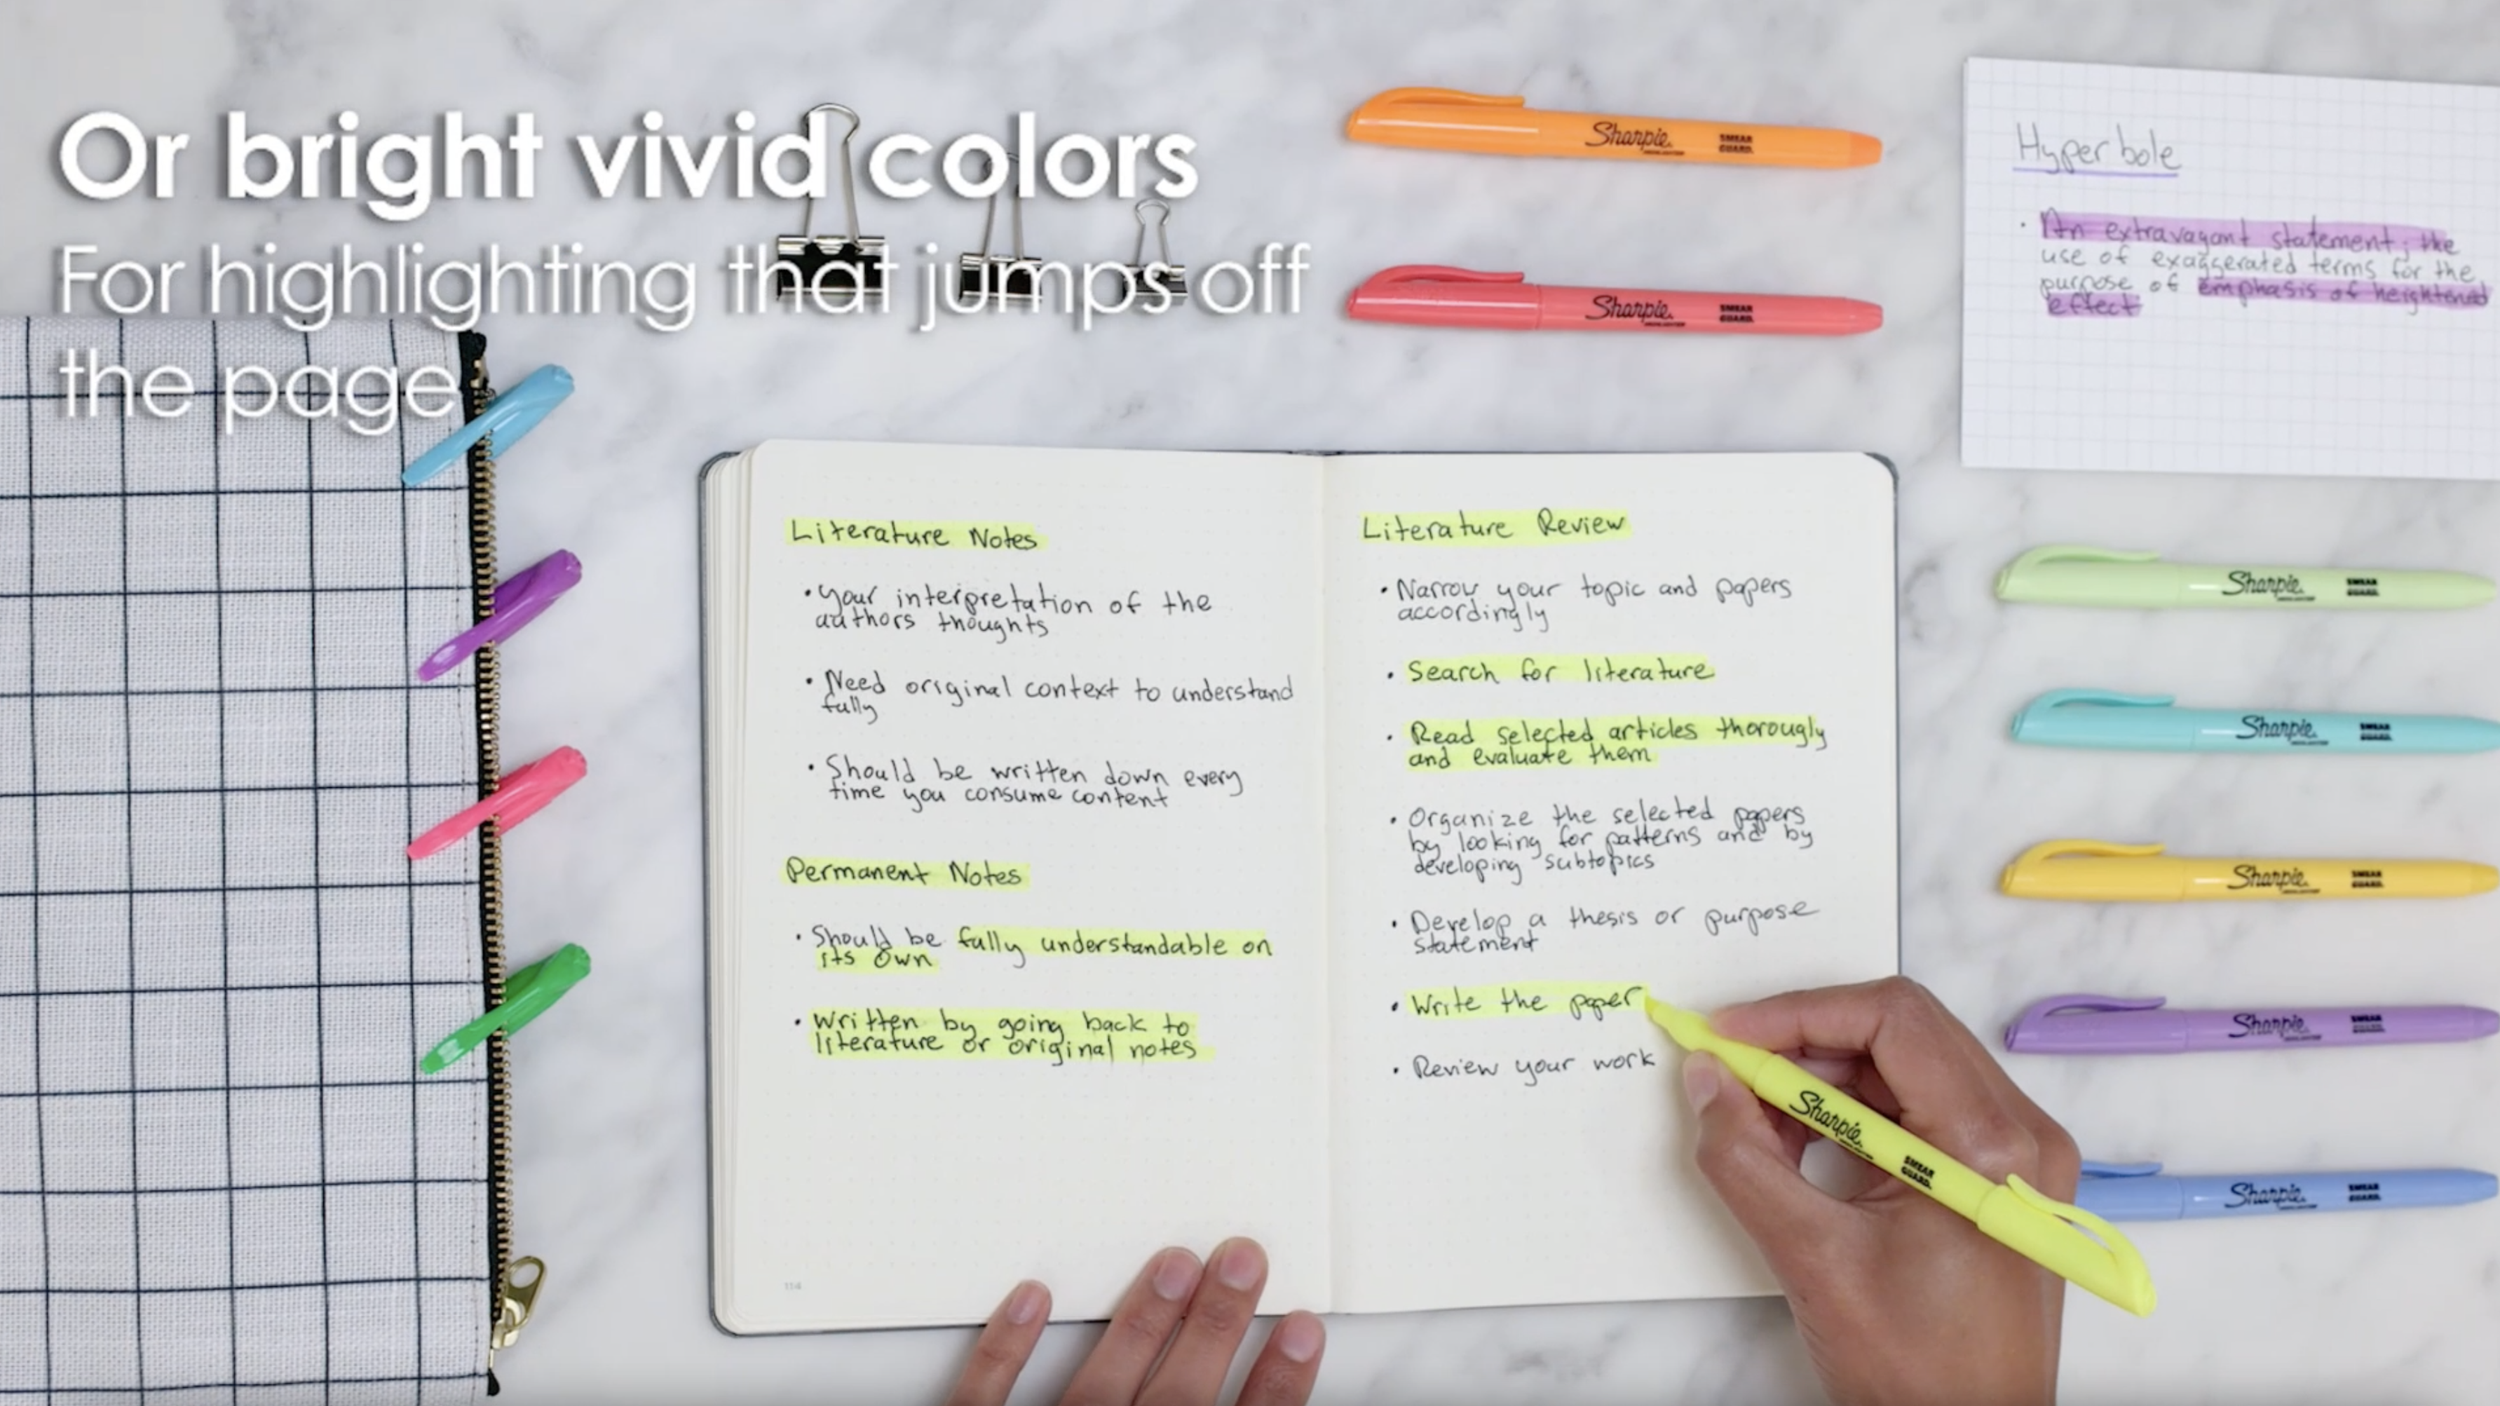 Or bright vivid colors
For highlighting that jumps off
the page
Sharpie
SMEAR
GUARD
Sharpie
SMEAR
GUARD
Hyperbole
• An extravagant statement; the
use of exaggerated terms for the
purpose of emphasis of heightened
effect
Literature Notes
• Your interpretation of the
authors thoughts
• Need original context to understand
fully
• Should be written down every
time you consume content
Permanent Notes
• Should be fully understandable on
its own
• Written by going back to
literature or original notes
114
Literature Review
• Narrow your topic and papers
accordingly
• Search for literature
• Read selected articles thorougly
and evaluate them
• Organize the selected papers
by looking for patterns and by
developing subtopics
• Develop a thesis or purpose
statement
• Write the paper
• Review your work
Sharpie
SMEAR
GUARD
Sharpie
SMEAR
GUARD
Sharpie
SMEAR
GUARD
Sharpie
SMEAR
GUARD
Sharpie
SMEAR
GUARD
Sharpie
SMEAR
GUARD